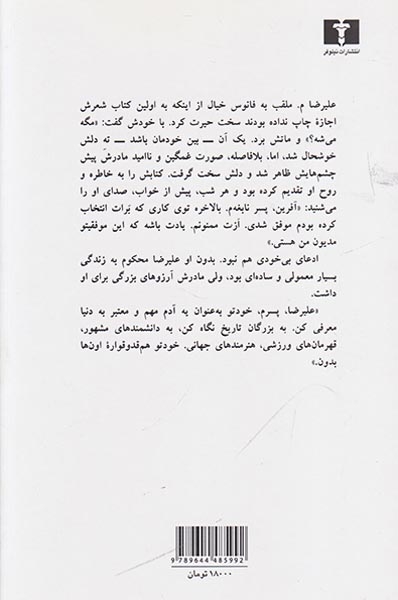 انتشارات نیلوفر
علیرضا م. ملقب به فانوس خیال از اینکه به اولین کتاب شعرش
اجازهٔ چاپ نداده بودند سخت حیرت کرد. با خودش گفت: «مگه
می‌شه؟» و ماتش برد. یک آن ــ بین خودمان باشد ــ تهِ دلش
خوشحال شد، اما، بلافاصله، صورت غمگین و ناامید مادرش پیش
چشم‌هایش ظاهر شد و دلش سخت گرفت. کتابش را به خاطره و
روح او تقدیم کرده بود و هر شب، پیش از خواب، صدای او را
می‌شنید: «آفرین، پسر نابغه‌م. بالاخره توی کاری که برات انتخاب
کرده بودم موفق شدی. ازت ممنونم. یادت باشه که این موفقیتو
مدیون من هستی.»
ادعای بی‌خودی هم نبود. بدون او علیرضا محکوم به زندگی
بسیار معمولی و ساده‌ای بود، ولی مادرش آرزوهای بزرگی برای او
داشت.
«علیرضا، پسرم، خودتو به‌عنوان یه آدم مهم و معتبر به دنیا
معرفی کن. به بزرگان تاریخ نگاه کن، به دانشمندهای مشهور،
قهرمان‌های ورزشی، هنرمندهای جهانی. خودتو هم‌قدوقوارهٔ اون‌ها
بدون.»
9 789644 485992
۱۸۰۰۰ تومان